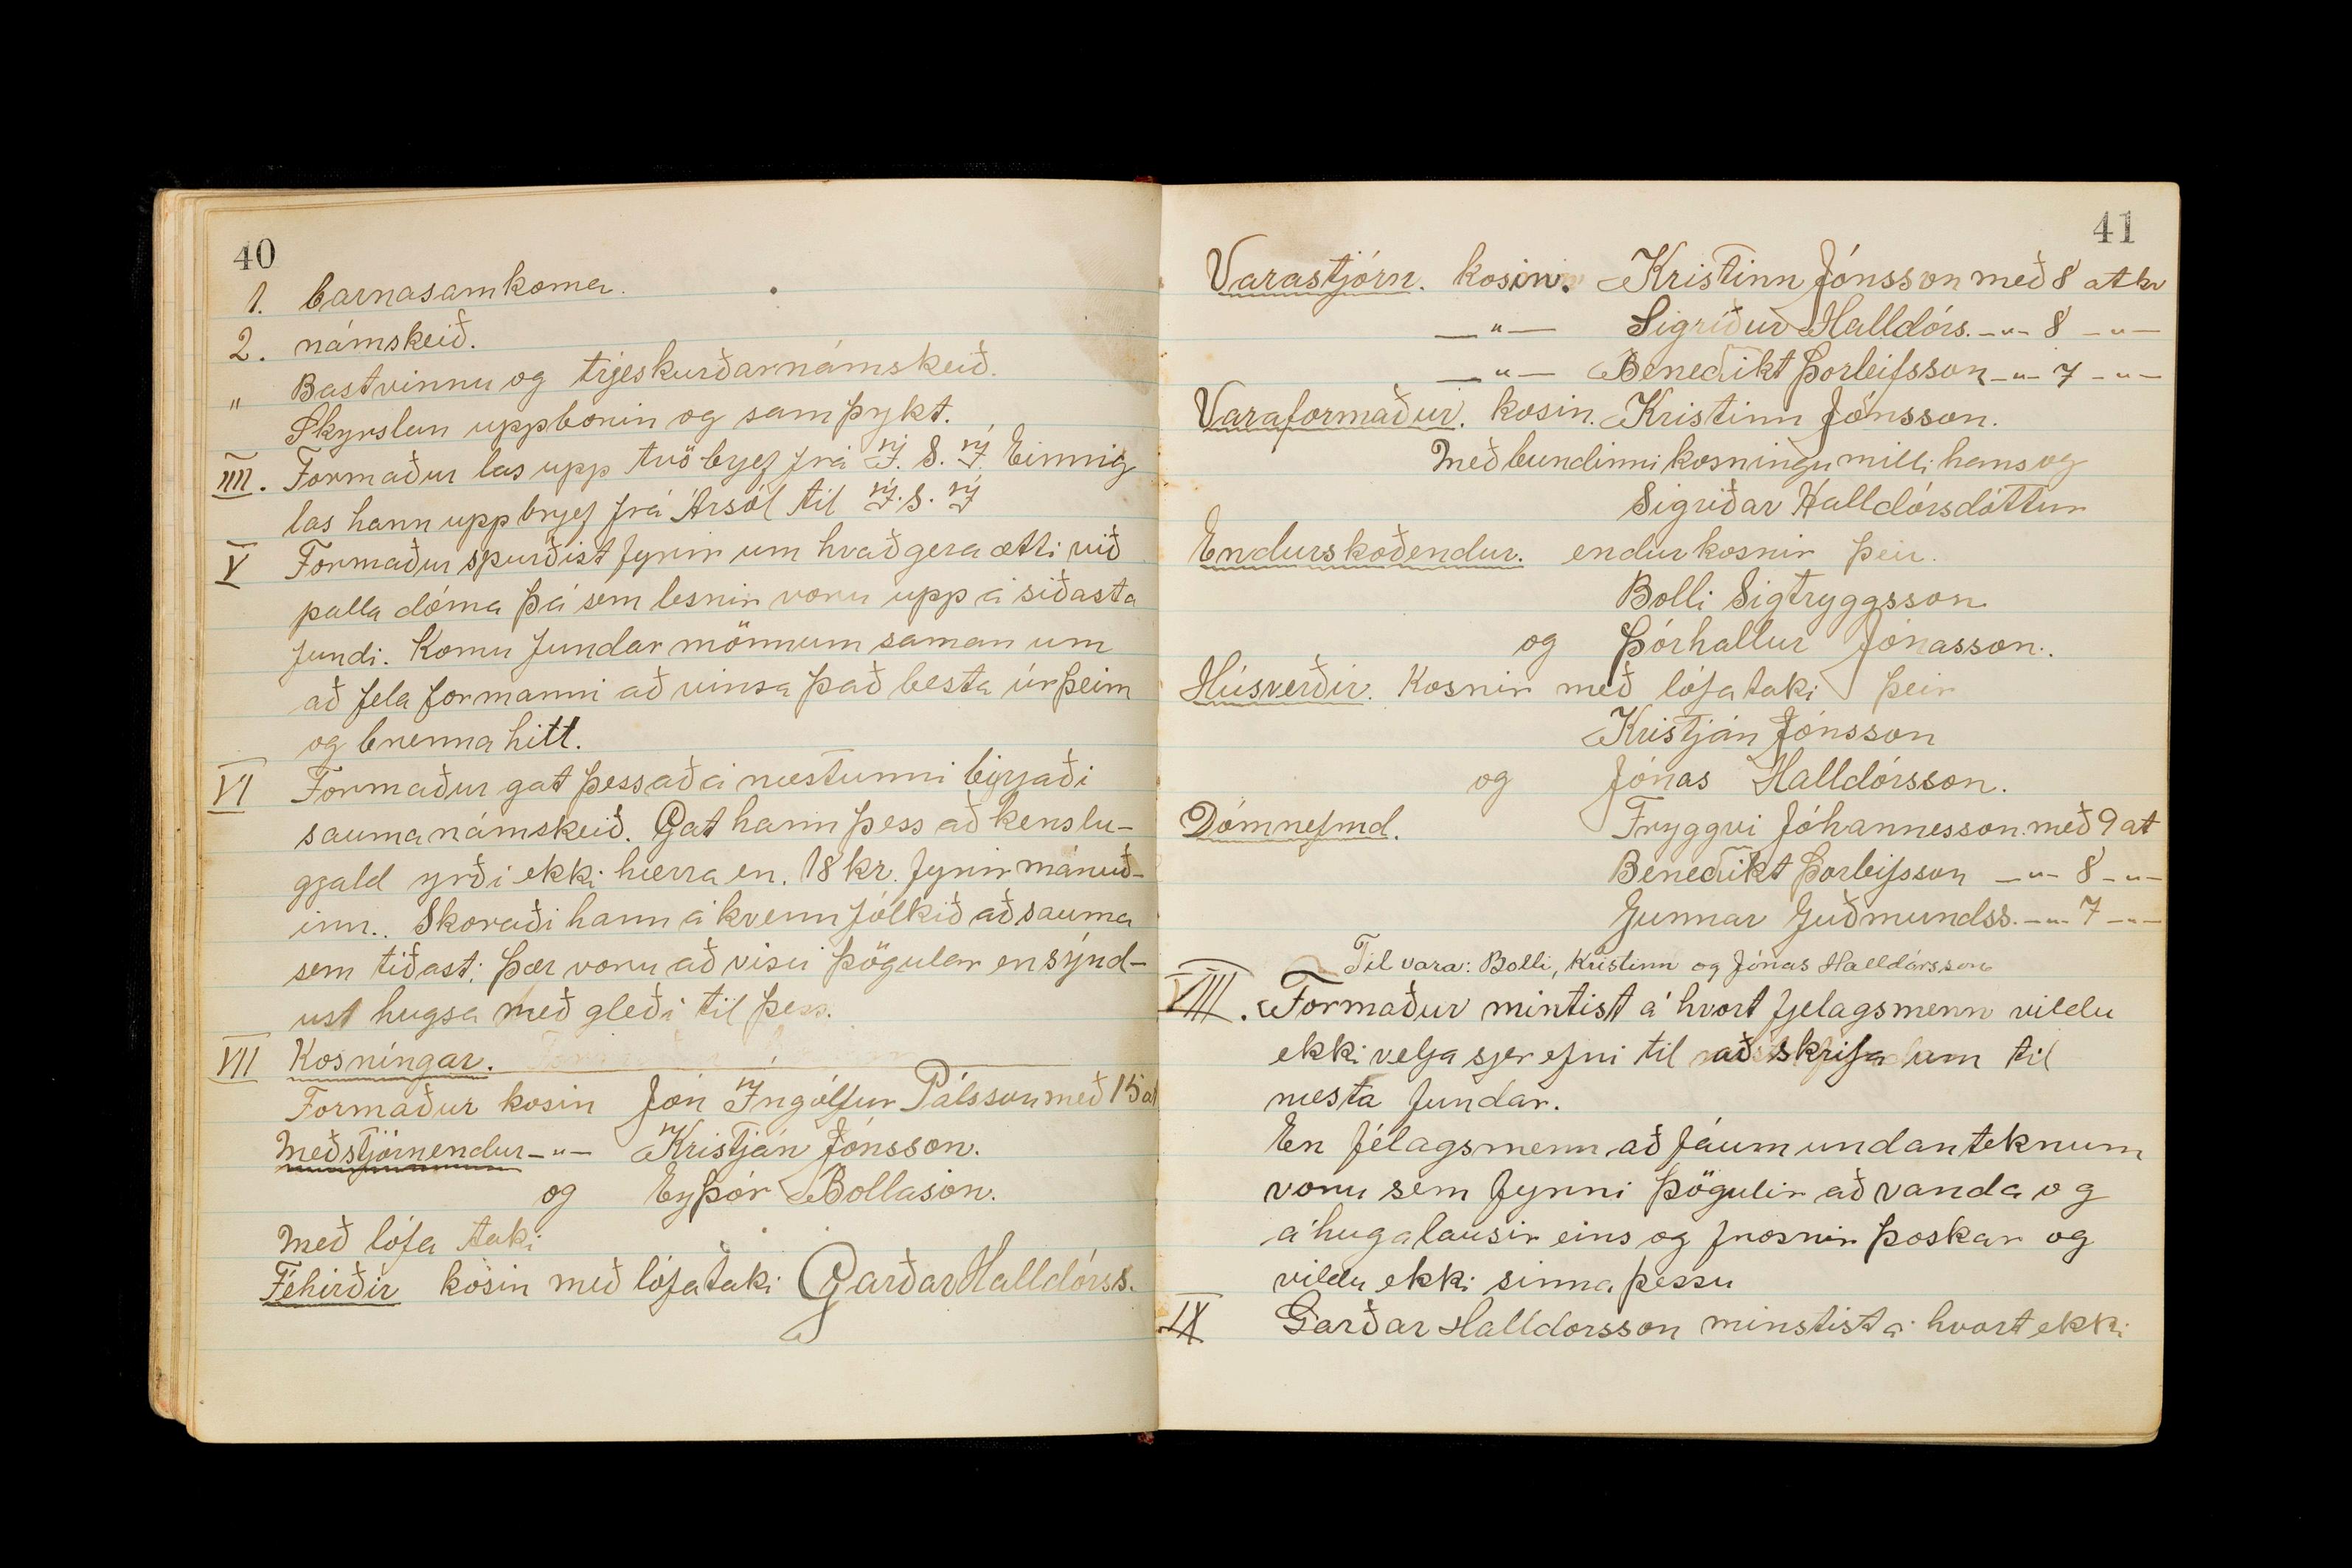 40
1. barnasamkoma.
2. námskeið.
" Bastvinnu og trjeskurðarnámskeið.
Skyrslan uppborin og samþykt.
IIII. Formaður las upp tvö brjef frá U. S. U. Einnig
las hann upp brjef frá Ársól til
V Formaður spurðist fyrir um hvað gera ætti við
palla dóma þá sem lesnir voru upp á síðasta
fundi. Komu fundar mönnum saman um
að fela formanni að vinsa það besta úr þeim
og brenna hitt.
VI Formaður gat þess að á næstunni byrjaði
sauma námskeið. Gat hann þess að kenslu-
gjald yrði ekki hærra en. 18 kr. fyrir mánuð-
inn.. Skoraði hann á kvennfólkið að sauma
sem tíðast; Þær voru að vísu þögular en sýnd-
ust hugsa með gleði til þess.
VII Kosníngar.
Formaður kosin Jón Ingólfur Pálsson með 15 at
Meðstjórnendur -"- Kristján Jónsson.
og Eyþór Bollason.
Með lófa taki
Féhirðir kosin með lófataki Garðar Halldórss.
41
Varastjórn. kosin. Kristinn Jónsson með 8 atkv
-"- Sigríður Halldórs. -"- 8 -"-
-"- Benedikt Þorleifsson -"- 7 -"-
Varaformaður. kosin. Kristinn Jónsson.
Með bundinni kosningu milli hans og
Sigríðar Halldórsdóttur
Endurskoðendur. endurkosnir þeir.
Bolli Sigtryggsson
og Þórhallur Jónasson.
Húsverðir. Kosnir með lófataki þeir
Kristján Jónsson
og Jónas Halldórsson.
Dómnefnd. Tryggvi Jóhannesson. með 9 at
Benedikt Þorleifsson -"- 8 -"-
Gunnar Guðmundss. -"- 7 -"-
Til vara: Bolli, Kristinn og Jónas Halldórsson
VIII. Formaður mintist á hvort fjelagsmenn vildu
ekki velja sjer efni til að skrifa um til
næsta fundar.
En félagsmenn að fáum undanteknum
voru sem fyrri þögulir að vanda og
áhugalausir eins og frosnir þoskar og
vildu ekki sinna þessu
IX Garðar Halldorsson minstist á hvort ekki